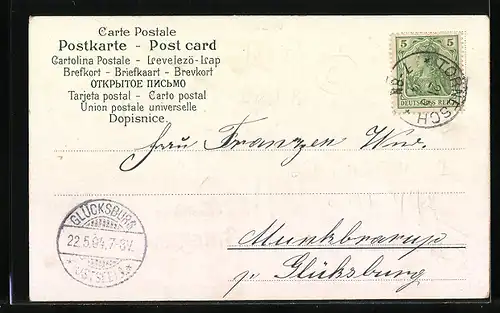 Carte Postale
Postkarte - Post card
Cartolina Postale - Levelező-Lap
Brefkort - Briefkaart - Brevkort
ОТКРЫТОЕ ПИСЬМО
Tarjeta postal - Carto postal
Union postale universelle
Dopisnice.
5 5
DEUTSCHES REICH
TORNESCH
Frau Franzen Wwe.
GLÜCKSBURG
22.5.04.7-8V.
(OSTSEE)
Munkbrarup
pr Glüksburg